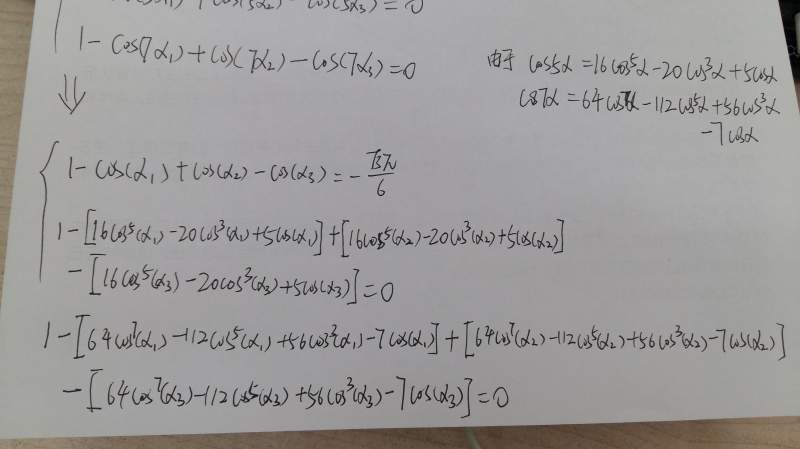 cos(5α₂) - cos(5α₃) = 0
1 - cos(7α₁) + cos(7α₂) - cos(7α₃) = 0
由于 cos5α = 16cos⁵α - 20cos³α + 5cosα
cos7α = 64cos⁷α - 112cos⁵α + 56cos³α
- 7cosα
⇓
1 - cos(α₁) + cos(α₂) - cos(α₃) = - √3π/6
1 - [16cos⁵(α₁) - 20cos³(α₁) + 5cos(α₁)] + [16cos⁵(α₂) - 20cos³(α₂) + 5cos(α₂)]
- [16cos⁵(α₃) - 20cos³(α₃) + 5cos(α₃)] = 0
1 - [64cos⁷(α₁) - 112cos⁵(α₁) + 56cos³(α₁) - 7cos(α₁)] + [64cos⁷(α₂) - 112cos⁵(α₂) + 56cos³(α₂) - 7cos(α₂)]
- [64cos⁷(α₃) - 112cos⁵(α₃) + 56cos³(α₃) - 7cos(α₃)] = 0